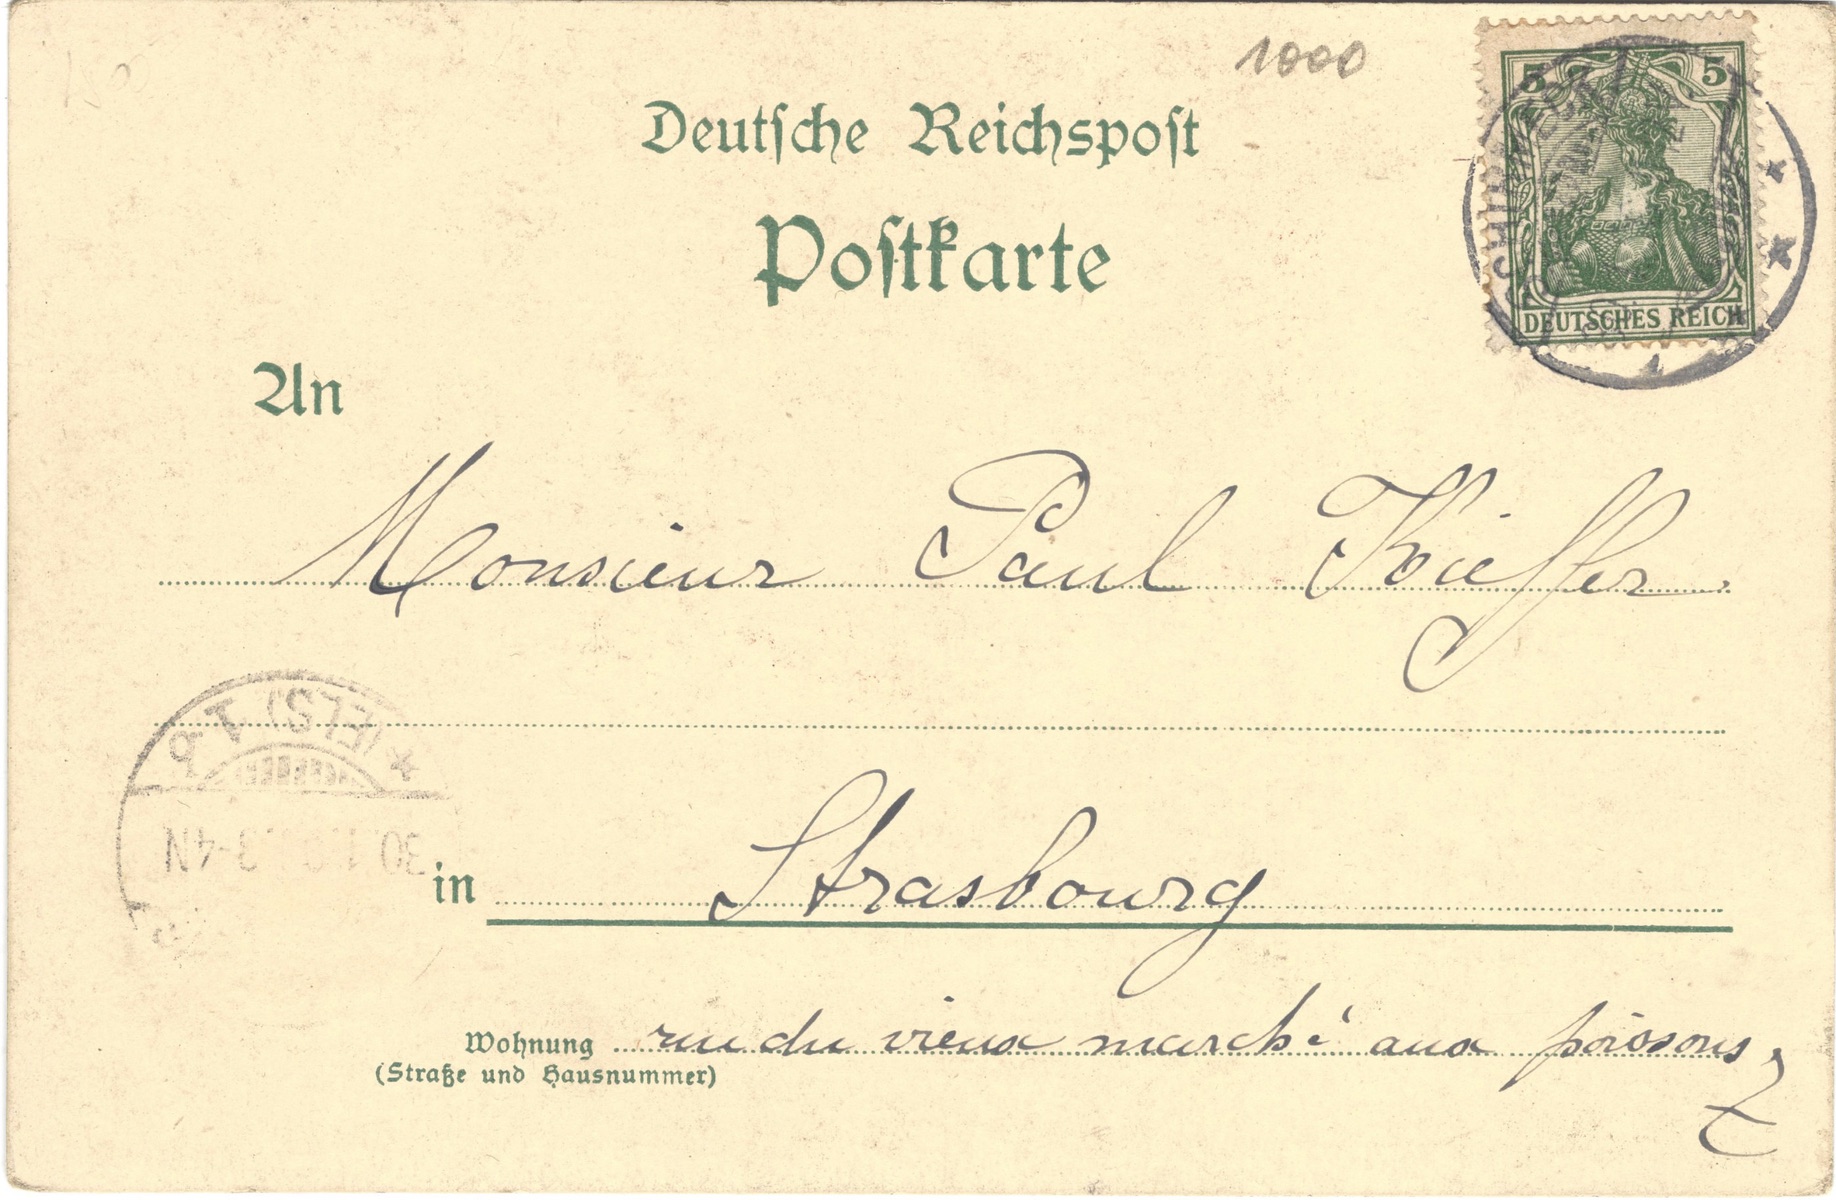 1000
Deutsche Reichspost
Postkarte
5 5
DEUTSCHES REICH
An
Monsieur Paul Kieffer
(ELS) 1 b
30. 3-4N
in Strasbourg
Wohnung rue du vieux marché aux poissons
(Straße und Hausnummer)